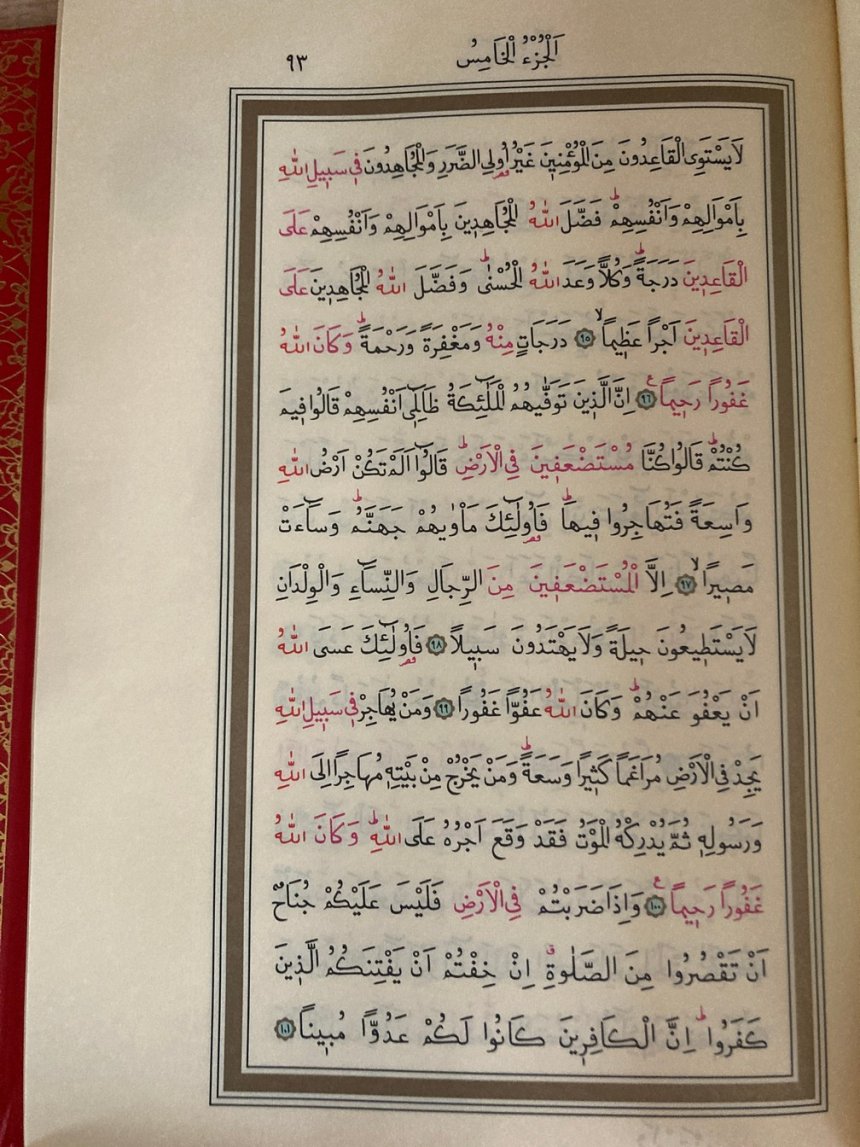 اَلْجُزْءُ الْخَامِسُ
٩٣
لَا يَسْتَوِى الْقَاعِدُونَ مِنَ الْمُؤْمِنِينَ غَيْرُ اُولِى الضَّرَرِ وَالْمُجَاهِدُونَ فِى سَبِيلِ اللّٰهِ
بِاَمْوَالِهِمْ وَاَنْفُسِهِمْۜ فَضَّلَ اللّٰهُ الْمُجَاهِدِينَ بِاَمْوَالِهِمْ وَاَنْفُسِهِمْ عَلَى
الْقَاعِدِينَ دَرَجَةًۜ وَكُلاًّ وَعَدَ اللّٰهُ الْحُسْنٰىۜ وَفَضَّلَ اللّٰهُ الْمُجَاهِدِينَ عَلَى
الْقَاعِدِينَ اَجْراً عَظِيماًۙ ﴿٩٥﴾ دَرَجَاتٍ مِنْهُ وَمَغْفِرَةً وَرَحْمَةًۜ وَكَانَ اللّٰهُ
غَفُوراً رَحِيماً۟ ﴿٩٦﴾ اِنَّ الَّذِينَ تَوَفّٰيهُمُ الْمَلٰٓئِكَةُ ظَالِمِٓى اَنْفُسِهِمْ قَالُوا فِيمَ
كُنْتُمْۜ قَالُوا كُنَّا مُسْتَضْعَفِينَ فِى الْاَرْضِۜ قَالُٓوا اَلَمْ تَكُنْ اَرْضُ اللّٰهِ
وَاسِعَةً فَتُهَاجِرُوا فِيهَاۜ فَاُو۬لٰٓئِكَ مَأْوٰيهُمْ جَهَنَّمُۜ وَسَٓاءَتْ
مَصِيراًۙ ﴿٩٧﴾ اِلَّا الْمُسْتَضْعَفِينَ مِنَ الرِّجَالِ وَالنِّسَٓاءِ وَالْوِلْدَانِ
لَا يَسْتَطِيعُونَ حِيلَةً وَلَا يَهْتَدُونَ سَبِيلاً ﴿٩٨﴾ فَاُو۬لٰٓئِكَ عَسَى اللّٰهُ
اَنْ يَعْفُوَ عَنْهُمْۜ وَكَانَ اللّٰهُ عَفُواًّ غَفُوراً ﴿٩٩﴾ وَمَنْ يُهَاجِرْ فِى سَبِيلِ اللّٰهِ
يَجِدْ فِى الْاَرْضِ مُرَاغَماً كَثِيراً وَسَعَةًۜ وَمَنْ يَخْرُجْ مِنْ بَيْتِهِ مُهَاجِراً اِلَى اللّٰهِ
وَرَسُولِهِ ثُمَّ يُدْرِكْهُ الْمَوْتُ فَقَدْ وَقَعَ اَجْرُهُ عَلَى اللّٰهِۜ وَكَانَ اللّٰهُ
غَفُوراً رَحِيماً۟ ﴿١٠٠﴾ وَاِذَا ضَرَبْتُمْ فِى الْاَرْضِ فَلَيْسَ عَلَيْكُمْ جُنَاحٌ
اَنْ تَقْصُرُوا مِنَ الصَّلٰوةِۗ اِنْ خِفْتُمْ اَنْ يَفْتِنَكُمُ الَّذِينَ
كَفَرُواۜ اِنَّ الْكَافِرِينَ كَانُوا لَكُمْ عَدُواًّ مُبِيناً ﴿١٠١﴾